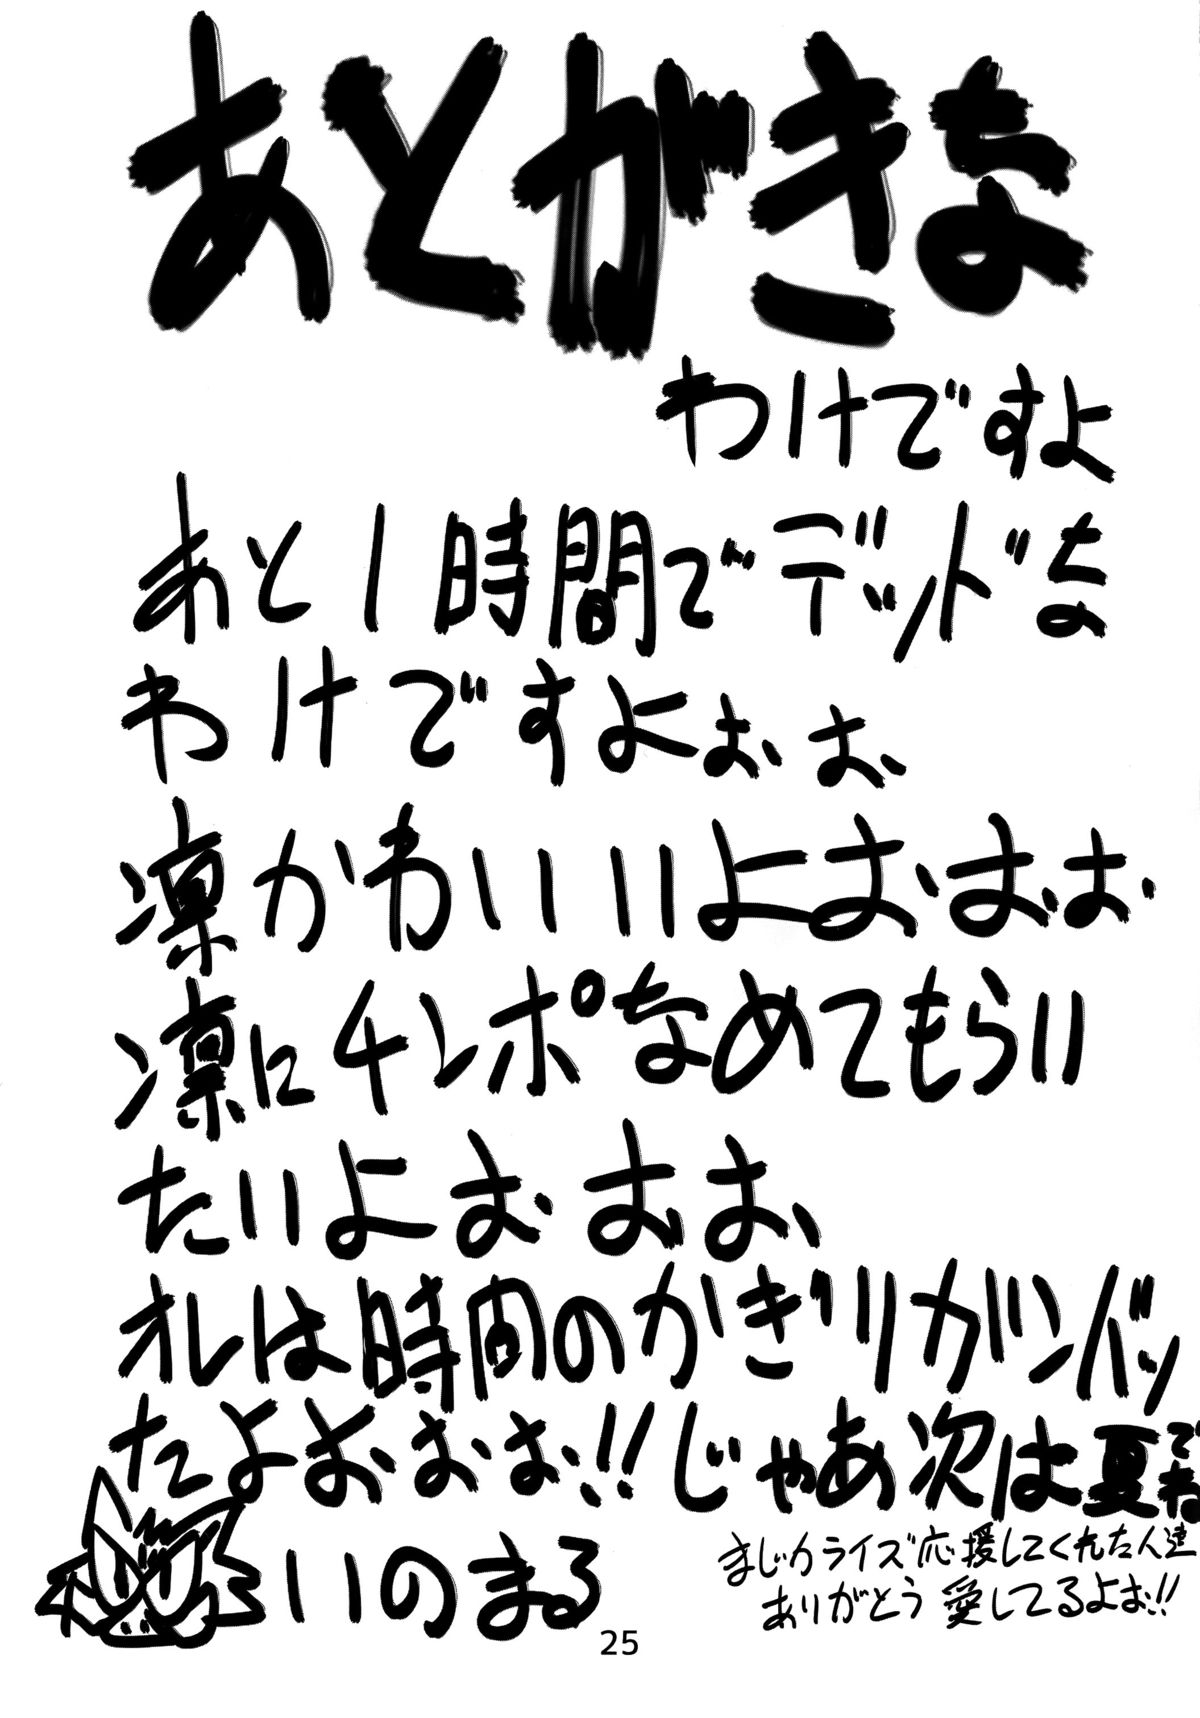 あとがきな
わけですよ
あと1時間でデッドな
わけですよぉぉ
凛かわいいよおおぉ
凛にチンポなめてもらい
たいよぉおお、
オレは時間のかぎりガンバッ
たよおおぉ!!じゃあ次は夏でね
いのまる
まじカライズ応援してくれた人達
ありがとう愛してるよぉ!!
25